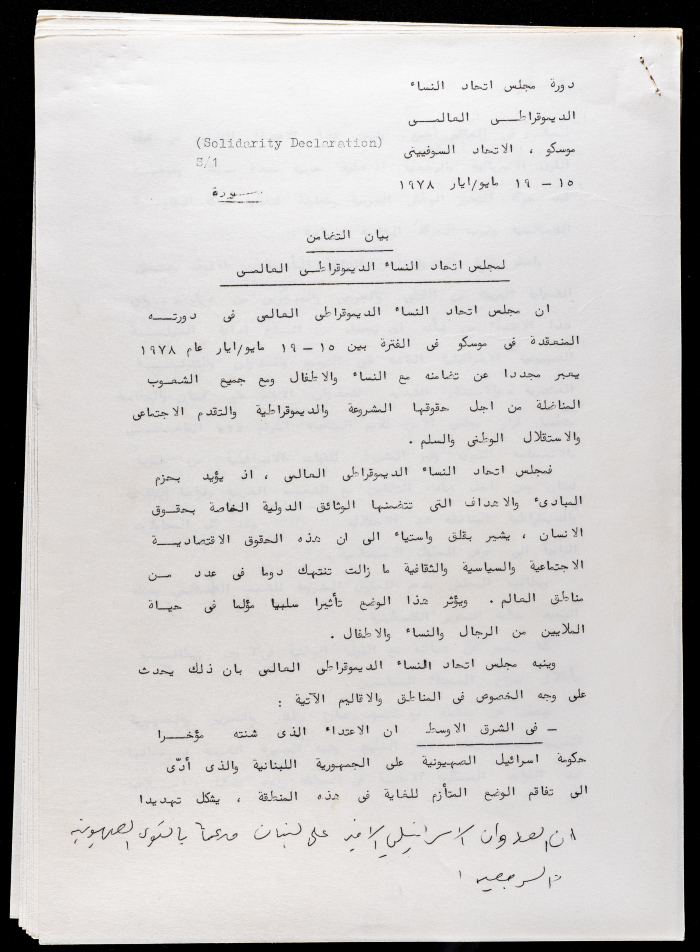 دورة مجلس اتحاد النساء
الديموقراطى العالمى
موسكو ، الاتحاد السوفيينى
١٥ - ١٩ مايو/ايار ١٩٧٨
(Solidarity Declaration)
S/1
مسودة
بيان التضامن
لمجلس اتحاد النساء الديموقراطى العالمى
ان مجلس اتحاد النساء الديموقراطى العالمى فى دورته
المنعقدة فى موسكو فى الفترة بين ١٥ - ١٩ مايو/ايار عام ١٩٧٨
يعبر مجددا عن تضامنه مع النساء والاطفال ومع جميع الشعوب
المناضلة من اجل حقوقها المشروعة والديموقراطية والتقدم الاجتماعى
والاستقلال الوطنى والسلم .
فمجلس اتحاد النساء الديموقراطى العالمى ، اذ يؤيد بحزم
المبادىء والاهداف التى تتضمنها الوثائق الدولية الخاصة بحقوق
الانسان ، يشير بقلق واستياء الى ان هذه الحقوق الاقتصادية
الاجتماعية والسياسية والثقافية ما زالت تنتهك دوما فى عدد من
مناطق العالم . ويؤثر هذا الوضع تأثيرا سلبيا مؤلما فى حياة
الملايين من الرجال والنساء والاطفال .
وينبه مجلس اتحاد النساء الديموقراطى العالمى بان ذلك يحدث
على وجه الخصوص فى المناطق والاقاليم الآتية :
- فى الشرق الاوسط ان الاعتداء الذى شنته مؤخرا
حكومة اسرائيل الصهيونية على الجمهورية اللبنانية والذى أدّى
الى تفاقم الوضع المتأزم للغاية فى هذه المنطقة ، يشكل تهديدا
ان العدوان الاسرائيلي الاخير على لبنان مدعما بالقوى الصهيونية
الرجعية